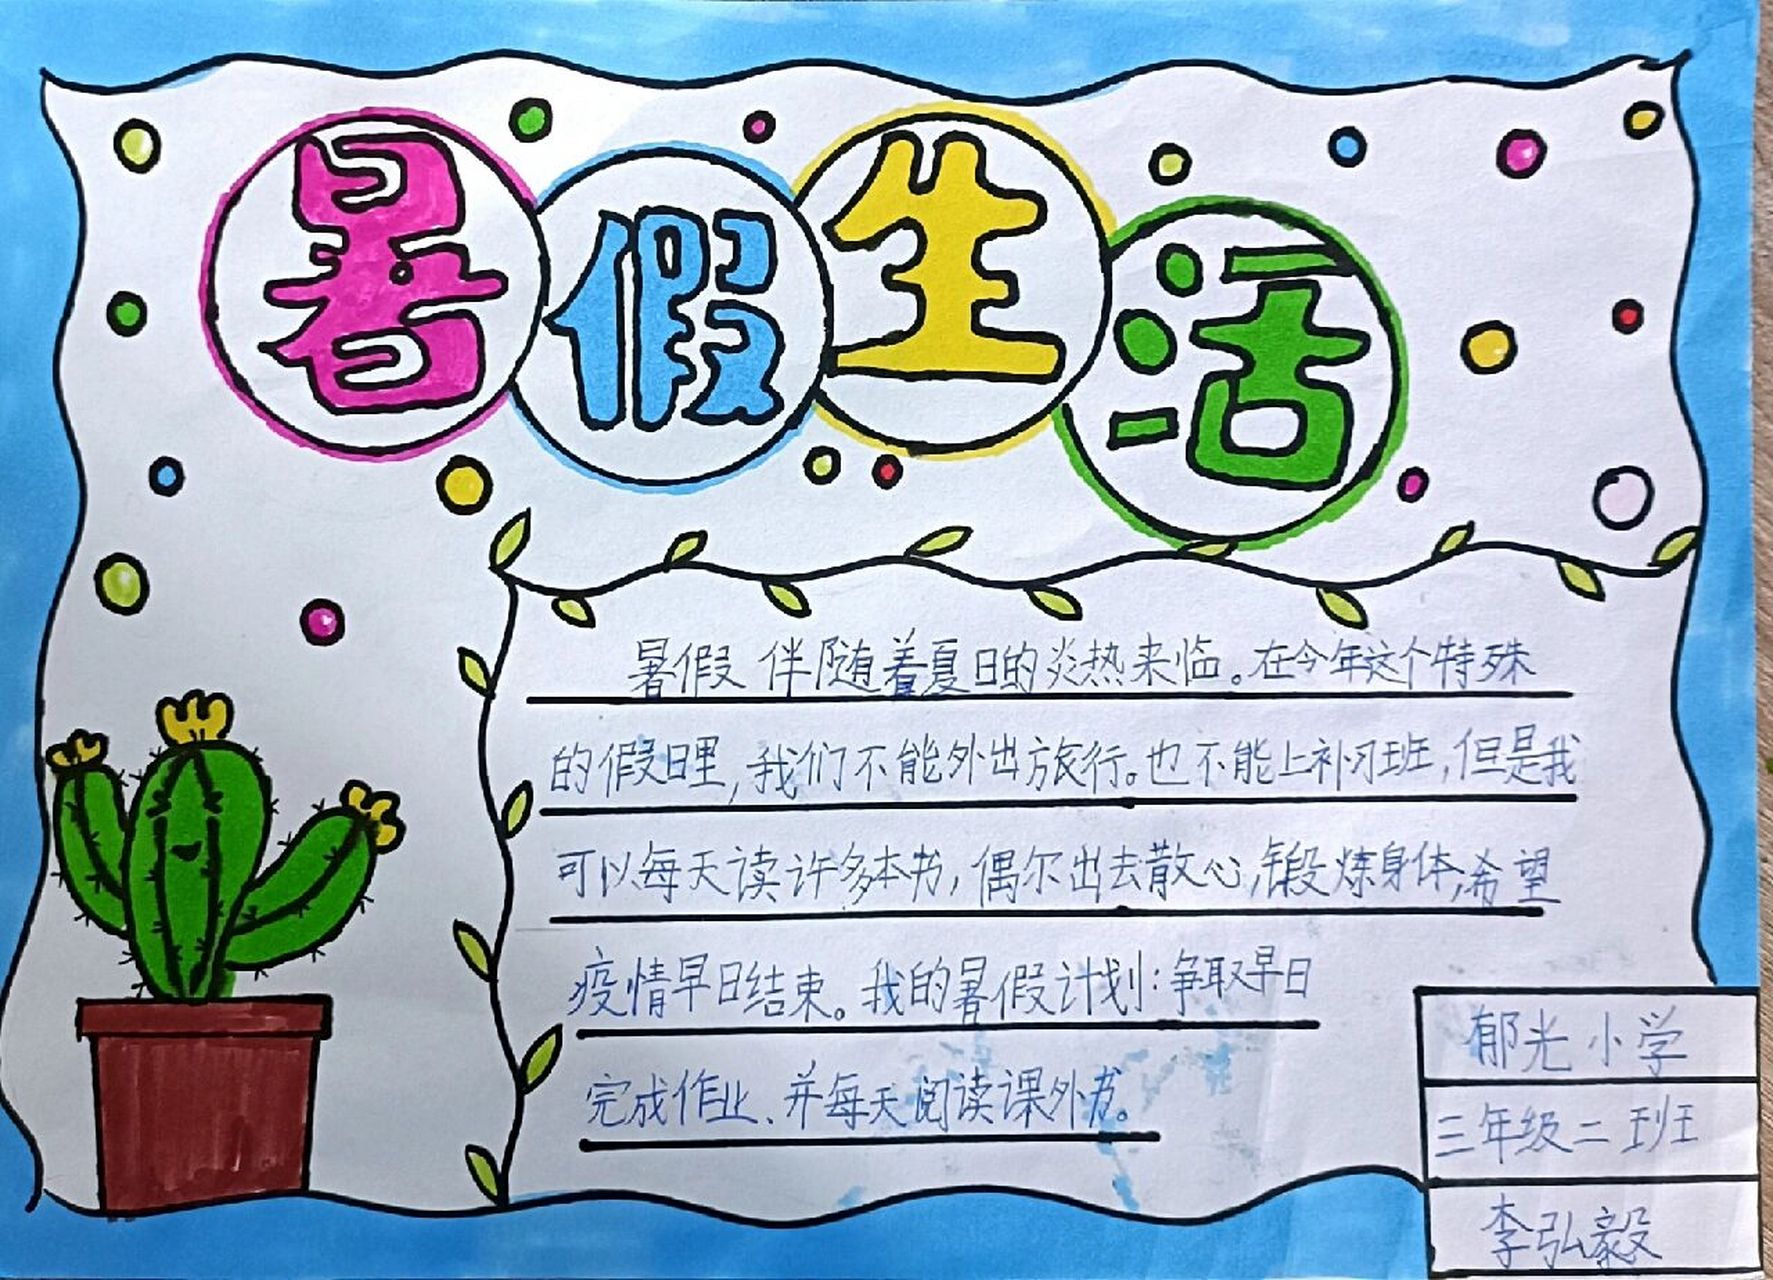 暑假生活
暑假 伴随着夏日的炎热来临。在今年这个特殊
的假日里,我们不能外出旅行。也不能上补习班,但是我
可以每天读许多本书,偶尔出去散心,锻炼身体,希望
疫情早日结束。我的暑假计划:争取早日
完成作业、并每天阅读课外书。
郁光小学
三年级二班
李弘毅